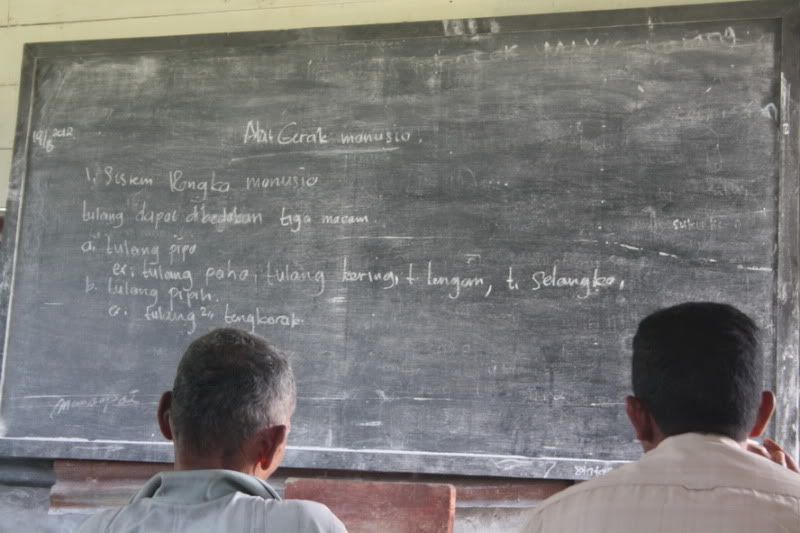 19/6 2012
Alat Gerak manusia.
1. Sistem Rangka manusia
tulang dapat dibedakan tiga macam.
a. tulang pipa
ex: tulang paha, tulang kering, t lengan, t. selangka,
b. tulang pipih.
ex. tulang2 tengkorak.